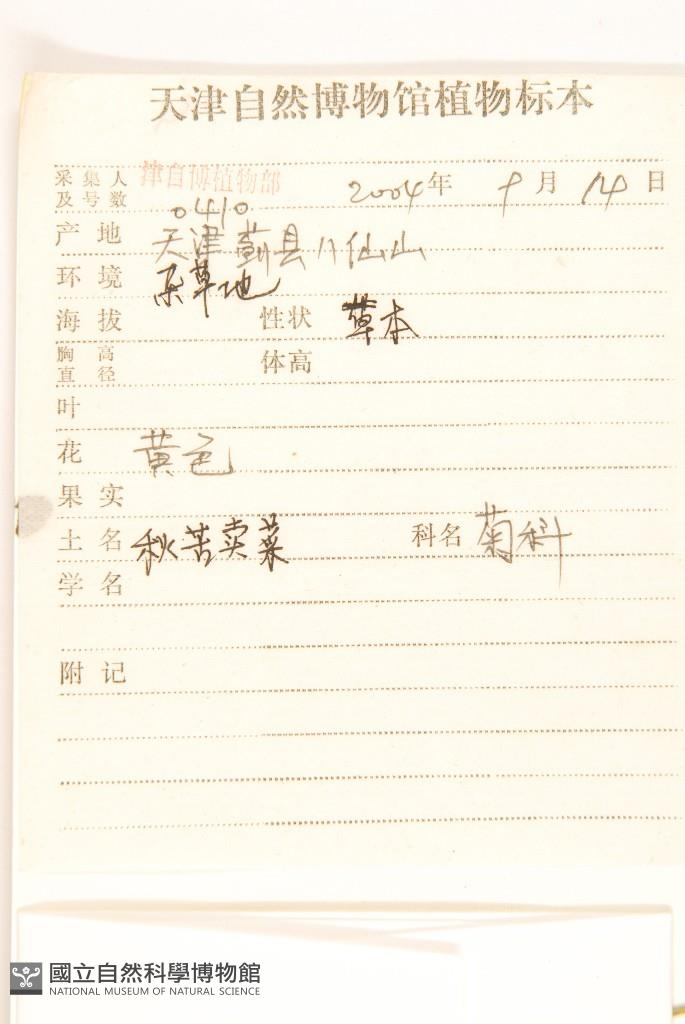 天津自然博物馆植物标本
采集人及号数 津自博植物部 2004年 9月 14日
0410
产地 天津蓟县八仙山
环境 杂草地
海拔 性状 草本
胸高直径 体高
叶
花 黄色
果实
土名 秋苦卖菜 科名 菊科
学名
附记
國立自然科學博物館
NATIONAL MUSEUM OF NATURAL SCIENCE